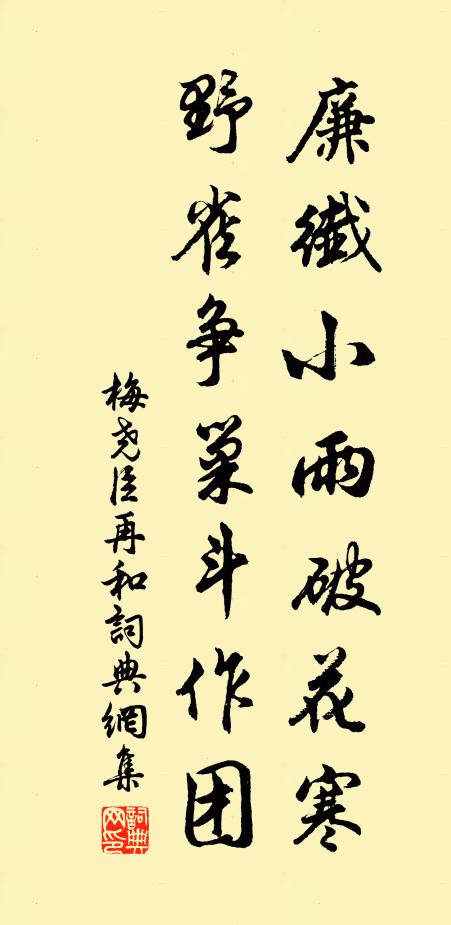 廉纖小雨破花寒
野雀争巢斗作团
梅尧臣再和詞典網集
詞典網印